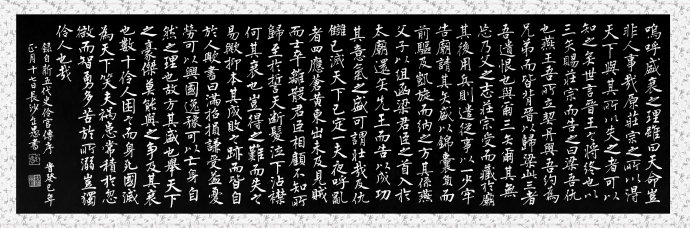 嗚呼盛衰之理雖曰天命豈
非人事哉原莊宗之所以得
天下與其所以失之者可以
知之矣世言晉王之將終也以
三矢賜莊宗而告之曰梁吾仇
也燕王吾所立契丹與吾約為
兄弟而皆背晉以歸梁此三者
吾遺恨也與爾三矢爾其無
忘乃父之志莊宗受而藏於廟
其後用兵則遣從事以一少牢
告廟請其矢盛以錦囊負而
前驅及凱旋而納之方其係燕
父子以組函梁君臣之首入於
太廟還矢先王而告以成功
其意氣之盛可謂壯哉及仇
讎已滅天下已定一夫夜呼亂
者四應蒼黃東出未及見賊
而士卒離散君臣相顧不知所
歸至於誓天斷髮泣下沾襟
何其衰也豈得之難而失之
易歟抑本其成敗之跡而皆自
於人歟書曰滿招損謙受益憂
勞可以興國逸豫可以亡身自
然之理也故方其盛也舉天下
之豪傑莫能與之爭及其衰
也數十伶人困之而身死國滅
為天下笑夫禍患常積於忽
微而智勇多困於所溺豈獨
伶人也哉
錄自新五代史伶官傳序 癸巳年
正月十七日長沙書